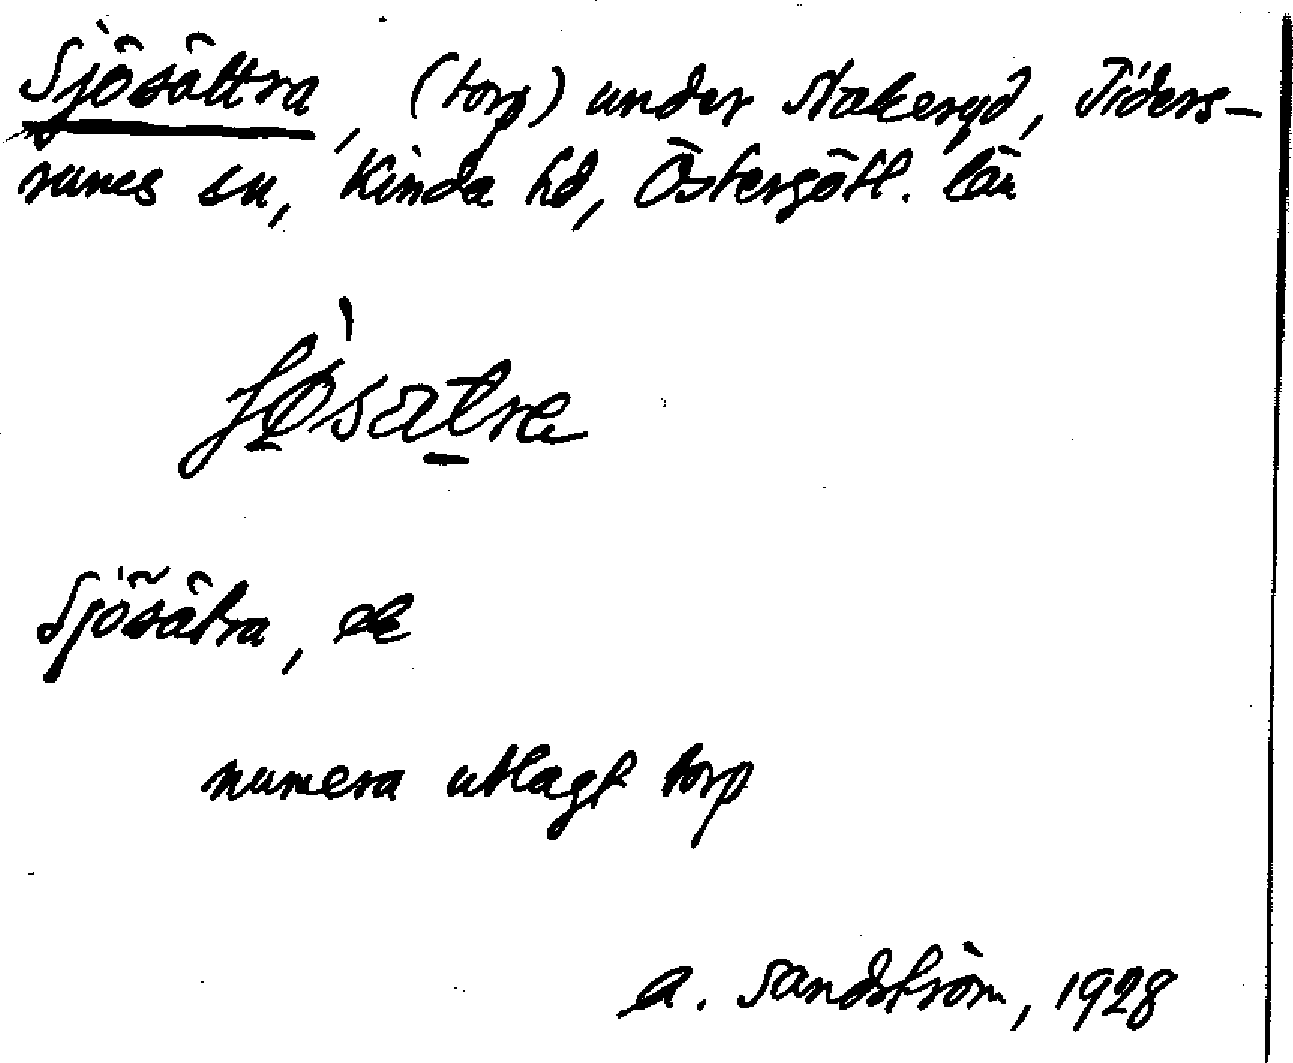 Sjösättra, (torp) under Nakeryd, Tiders-
rums sn, Kinda hd, Östergötl. län
Sjösätra,
numera utlagt torp
A. Sandström, 1928